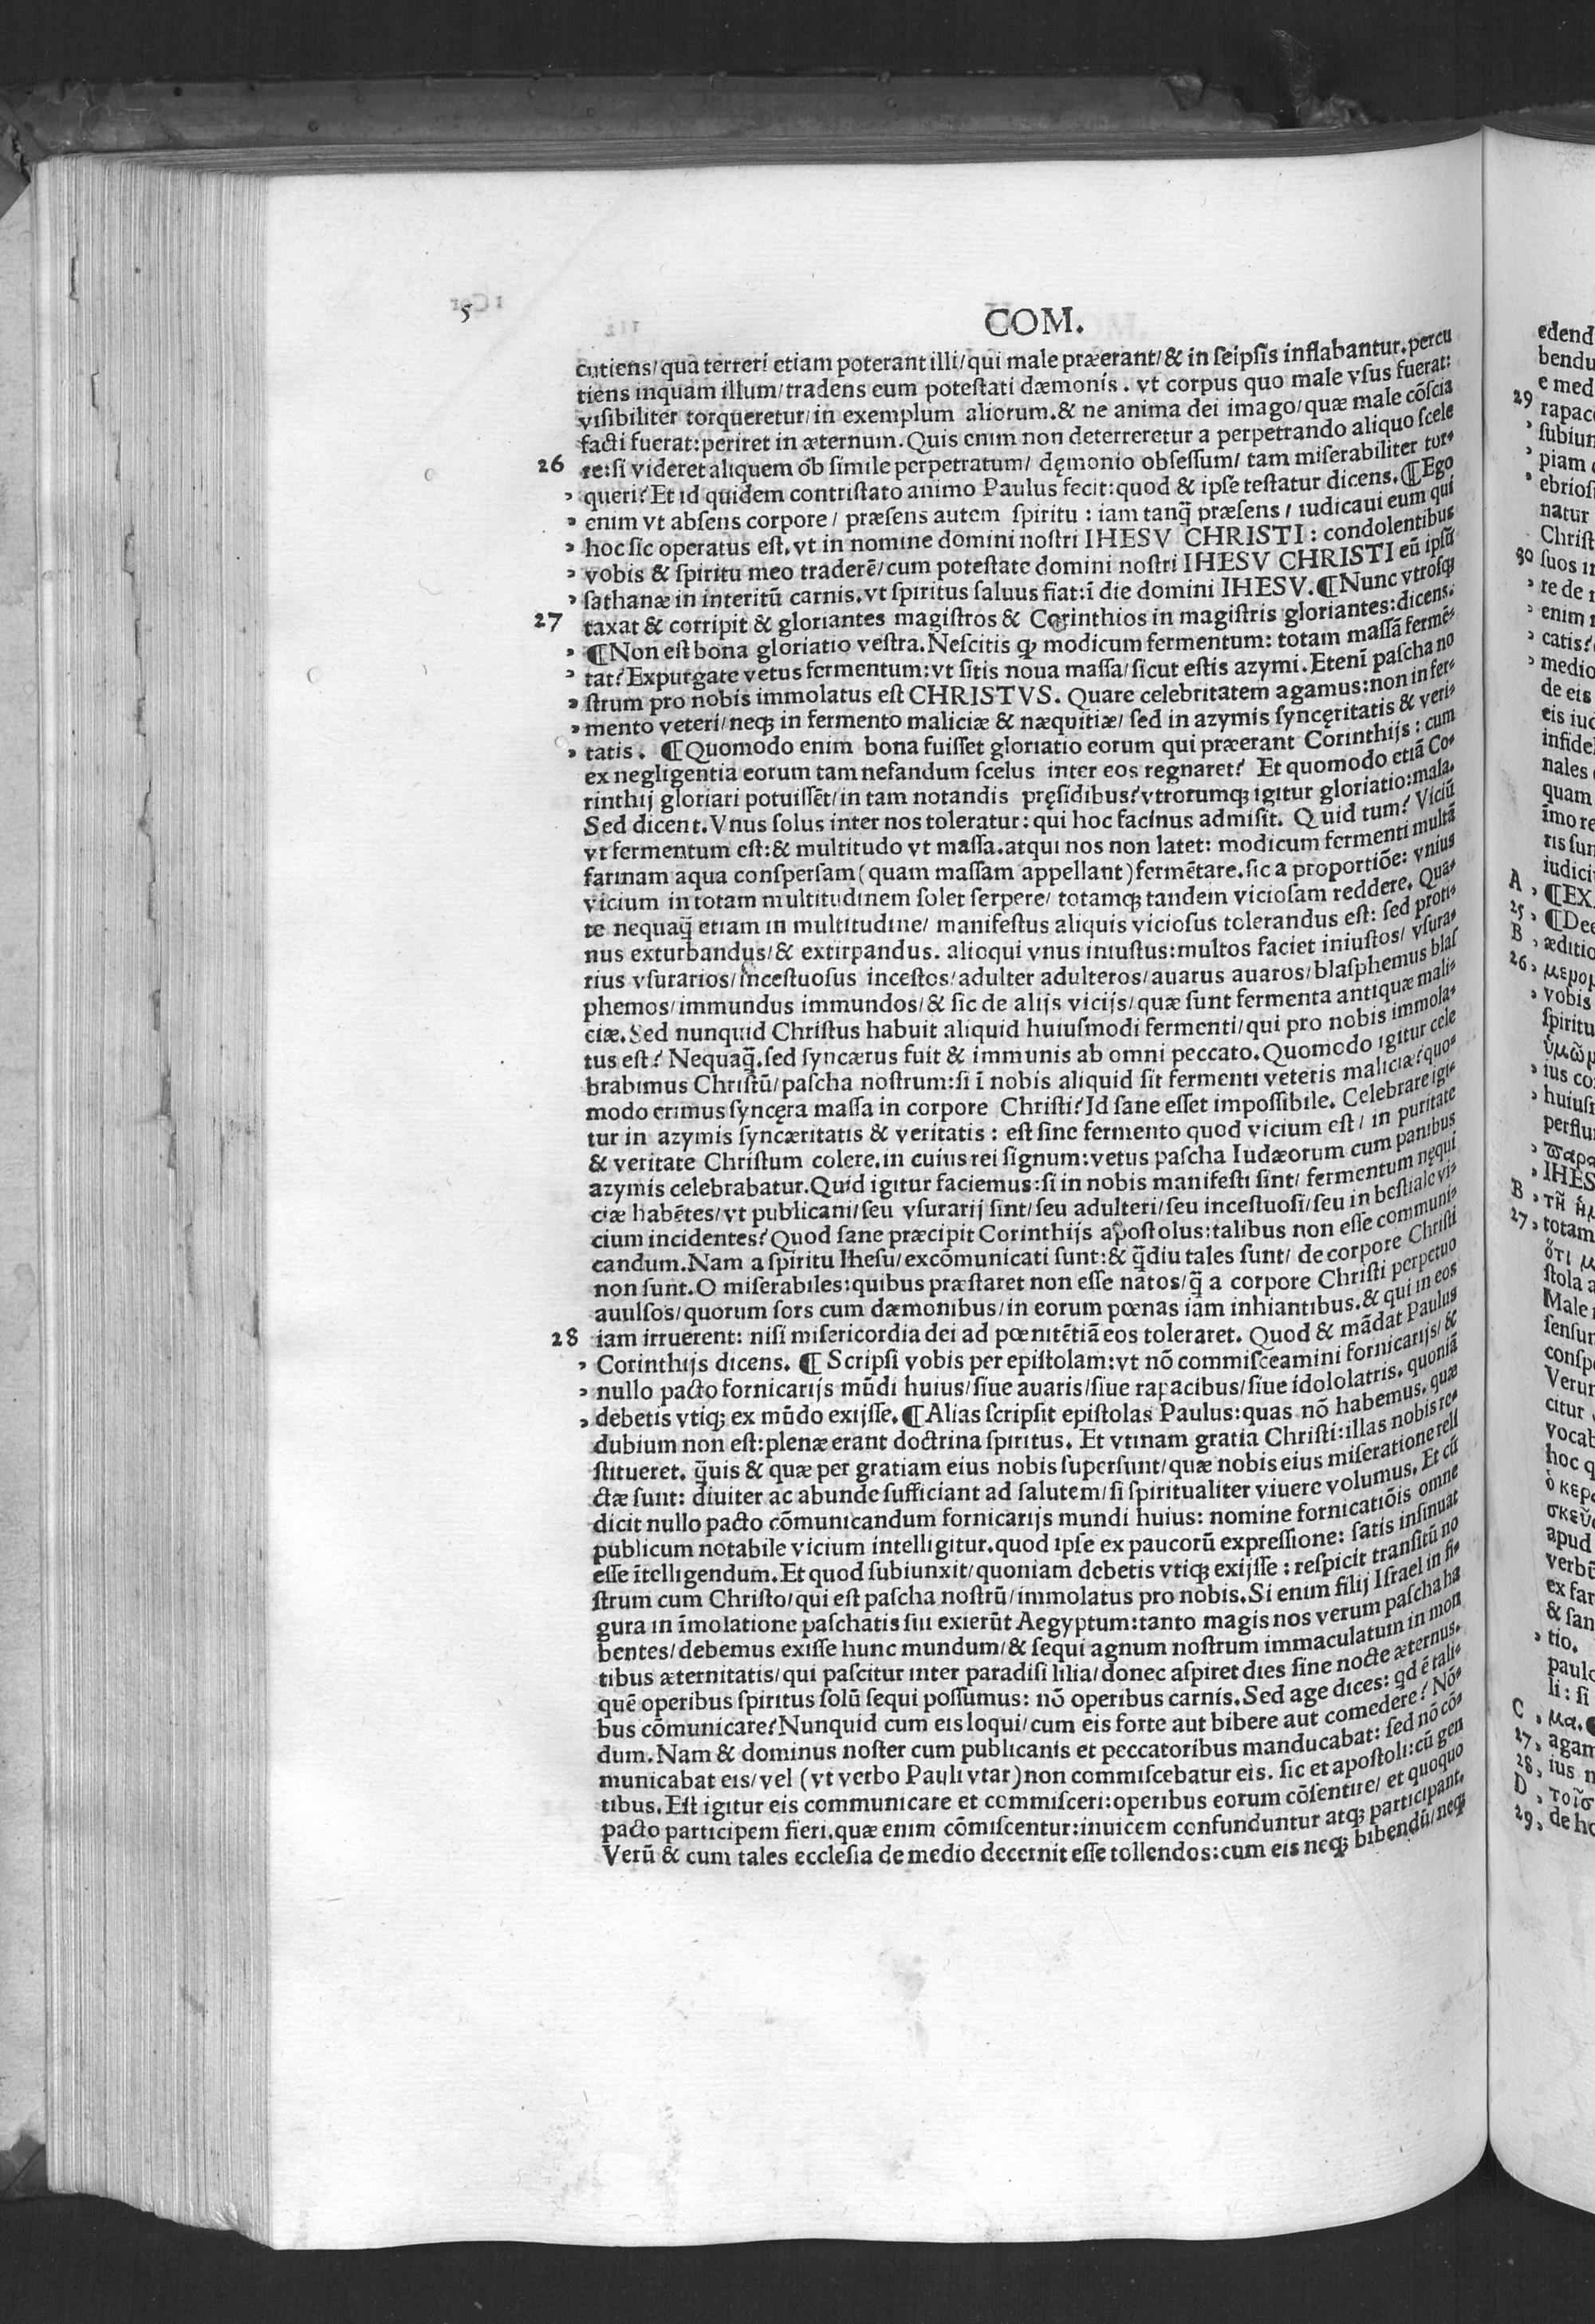 5
COM.
cutiens/qua terreri etiam poterant illi/qui male præerant/& in ſeipſis inflabantur.percu
tiens inquam illum/tradens eum poteſtati dæmonis. vt corpus quo male vſus fuerat:
viſibiliter torqueretur/in exemplum aliorum.& ne anima dei imago/quæ male cõſcia
facti fuerat:periret in æternum.Quis enim non deterreretur a perpetrando aliquo ſcele
26 re:ſi videret aliquem ob ſimile perpetratum/ dęmonio obſeſſum/ tam miſerabiliter tor⸗
queri? Et id quidem contriſtato animo Paulus fecit:quod & ipſe teſtatur dicens.¶Ego
enim vt abſens corpore/ præſens autem ſpiritu : iam tanq̃ præſens/ iudicaui eum qui
hoc ſic operatus eſt.vt in nomine domini noſtri IHESV CHRISTI : condolentibus
vobis & ſpiritu meo traderẽ/cum poteſtate domini noſtri IHESV CHRISTI eũ ipſũ
ſathanæ in interitũ carnis.vt ſpiritus ſaluus fiat:ĩ die domini IHESV.¶Nunc vtroſq;
27 taxat & corripit & gloriantes magiſtros & Corinthios in magiſtris gloriantes:dicens.
¶Non eſt bona gloriatio veſtra.Neſcitis q; modicum fermentum: totam maſſã fermẽ⸗
tat? Expurgate vetus fermentum:vt ſitis noua maſſa/ſicut eſtis azymi. Etenĩ paſcha no
ſtrum pro nobis immolatus eſt CHRISTVS. Quare celebritatem agamus:non in fer⸗
mento veteri/neq; in fermento maliciæ & næquitiæ/ ſed in azymis ſyncęritatis & veri⸗
tatis. ¶Quomodo enim bona fuiſſet gloriatio eorum qui præerant Corinthijs : cum
ex negligentia eorum tam nefandum ſcelus inter eos regnaret? Et quomodo etiã Co⸗
rinthij gloriari potuiſſẽt/in tam notandis pręſidibus?vtrorumq; igitur gloriatio:mala.
Sed dicent.Vnus ſolus inter nos toleratur: qui hoc facinus admiſit. Quid tum? Viciũ
vt fermentum eſt:& multitudo vt maſſa.atqui nos non latet: modicum fermenti multã
farinam aqua conſperſam(quam maſſam appellant)fermẽtare.ſic a proportiõe: vnius
vicium in totam multitudinem ſolet ſerpere/ totamq; tandem vicioſam reddere. Qua⸗
te nequaq̃ etiam in multitudine/ manifeſtus aliquis vicioſus tolerandus eſt: ſed proti⸗
nus exturbandus/& extirpandus. alioqui vnus iniuſtus:multos faciet iniuſtos/ vſura⸗
rius vſurarios/inceſtuoſus inceſtos/adulter adulteros/auarus auaros/blaſphemus blaſ
phemos/immundus immundos/& ſic de alijs vicijs/quæ ſunt fermenta antiquæ mali⸗
ciæ.Sed nunquid Chriſtus habuit aliquid huiuſmodi fermenti/qui pro nobis immola⸗
tus eſt? Nequaq̃.ſed ſyncærus fuit & immunis ab omni peccato.Quomodo igitur cele
brabimus Chriſtũ/paſcha noſtrum:ſi ĩ nobis aliquid ſit fermenti veteris maliciæ?quo⸗
modo erimus ſyncęra maſſa in corpore Chriſti?Id ſane eſſet impoſſibile. Celebrare igi⸗
tur in azymis ſyncæritatis & veritatis : eſt ſine fermento quod vicium eſt/ in puritate
& veritate Chriſtum colere.in cuius rei ſignum:vetus paſcha Iudæorum cum panibus
azymis celebrabatur.Quid igitur faciemus:ſi in nobis manifeſti ſint/ fermentum nęqui
ciæ habẽtes/vt publicani/ſeu vſurarij ſint/ſeu adulteri/ſeu inceſtuoſi/ſeu in beſtiale vi⸗
cium incidentes?Quod ſane præcipit Corinthijs apoſtolus:talibus non eſſe communi⸗
candum.Nam a ſpiritu Iheſu/excõmunicati ſunt:& q̃diu tales ſunt/ de corpore Chriſti
non ſunt.O miſerabiles:quibus præſtaret non eſſe natos/q̃ a corpore Chriſti perpetuo
auulſos/quorum ſors cum dæmonibus/in eorum pœnas iam inhiantibus.& qui in eos
28 iam irruerent: niſi miſericordia dei ad pœnitẽtiã eos toleraret. Quod & mãdat Paulus
Corinthijs dicens. ¶ Scripſi vobis per epiſtolam:vt nõ commiſceamini fornicarijs/&
nullo pacto fornicarijs mũdi huius/ſiue auaris/ſiue rapacibus/ſiue idololatris. quoniã
debetis vtiq; ex mũdo exijſſe.¶Alias ſcripſit epiſtolas Paulus:quas nõ habemus.quæ
dubium non eſt:plenæ erant doctrina ſpiritus. Et vtinam gratia Chriſti:illas nobis re⸗
ſtitueret. q̃uis & quæ per gratiam eius nobis ſuperſunt/quæ nobis eius miſeratione reli
ctæ ſunt: diuiter ac abunde ſufficiant ad ſalutem/ſi ſpiritualiter viuere volumus. Et cũ
dicit nullo pacto cõmunicandum fornicarijs mundi huius: nomine fornicatiõis omne
publicum notabile vicium intelligitur.quod ipſe ex paucorũ expreſſione: ſatis inſinuat
eſſe ĩtelligendum.Et quod ſubiunxit/quoniam debetis vtiq; exijſſe : reſpicit tranſitũ no
ſtrum cum Chriſto/qui eſt paſcha noſtrũ/immolatus pro nobis.Si enim filij Iſrael in fi⸗
gura in ĩmolatione paſchatis ſui exierũt Aegyptum:tanto magis nos verum paſcha ha
bentes/debemus exiſſe hunc mundum/& ſequi agnum noſtrum immaculatum in mon
tibus æternitatis/qui paſcitur inter paradiſi lilia/donec aſpiret dies ſine nocte æternus.
quẽ operibus ſpiritus ſolũ ſequi poſſumus: nõ operibus carnis.Sed age dices: qd ẽ tali⸗
bus cõmunicare?Nunquid cum eis loqui/cum eis forte aut bibere aut comedere? Nõ⸗
dum.Nam & dominus noſter cum publicanis et peccatoribus manducabat: ſed nõ cõ⸗
municabat eis/vel (vt verbo Pauli vtar)non commiſcebatur eis. ſic et apoſtoli:cũ gen
tibus.Eſt igitur eis communicare et commiſceri:operibus eorum cõſentire/ et quoquo
pacto participem fieri.quæ enim cõmiſcentur:inuicem confunduntur atq; participant.
Verũ & cum tales eccleſia de medio decernit eſſe tollendos:cum eis neq; bibendũ/neq;